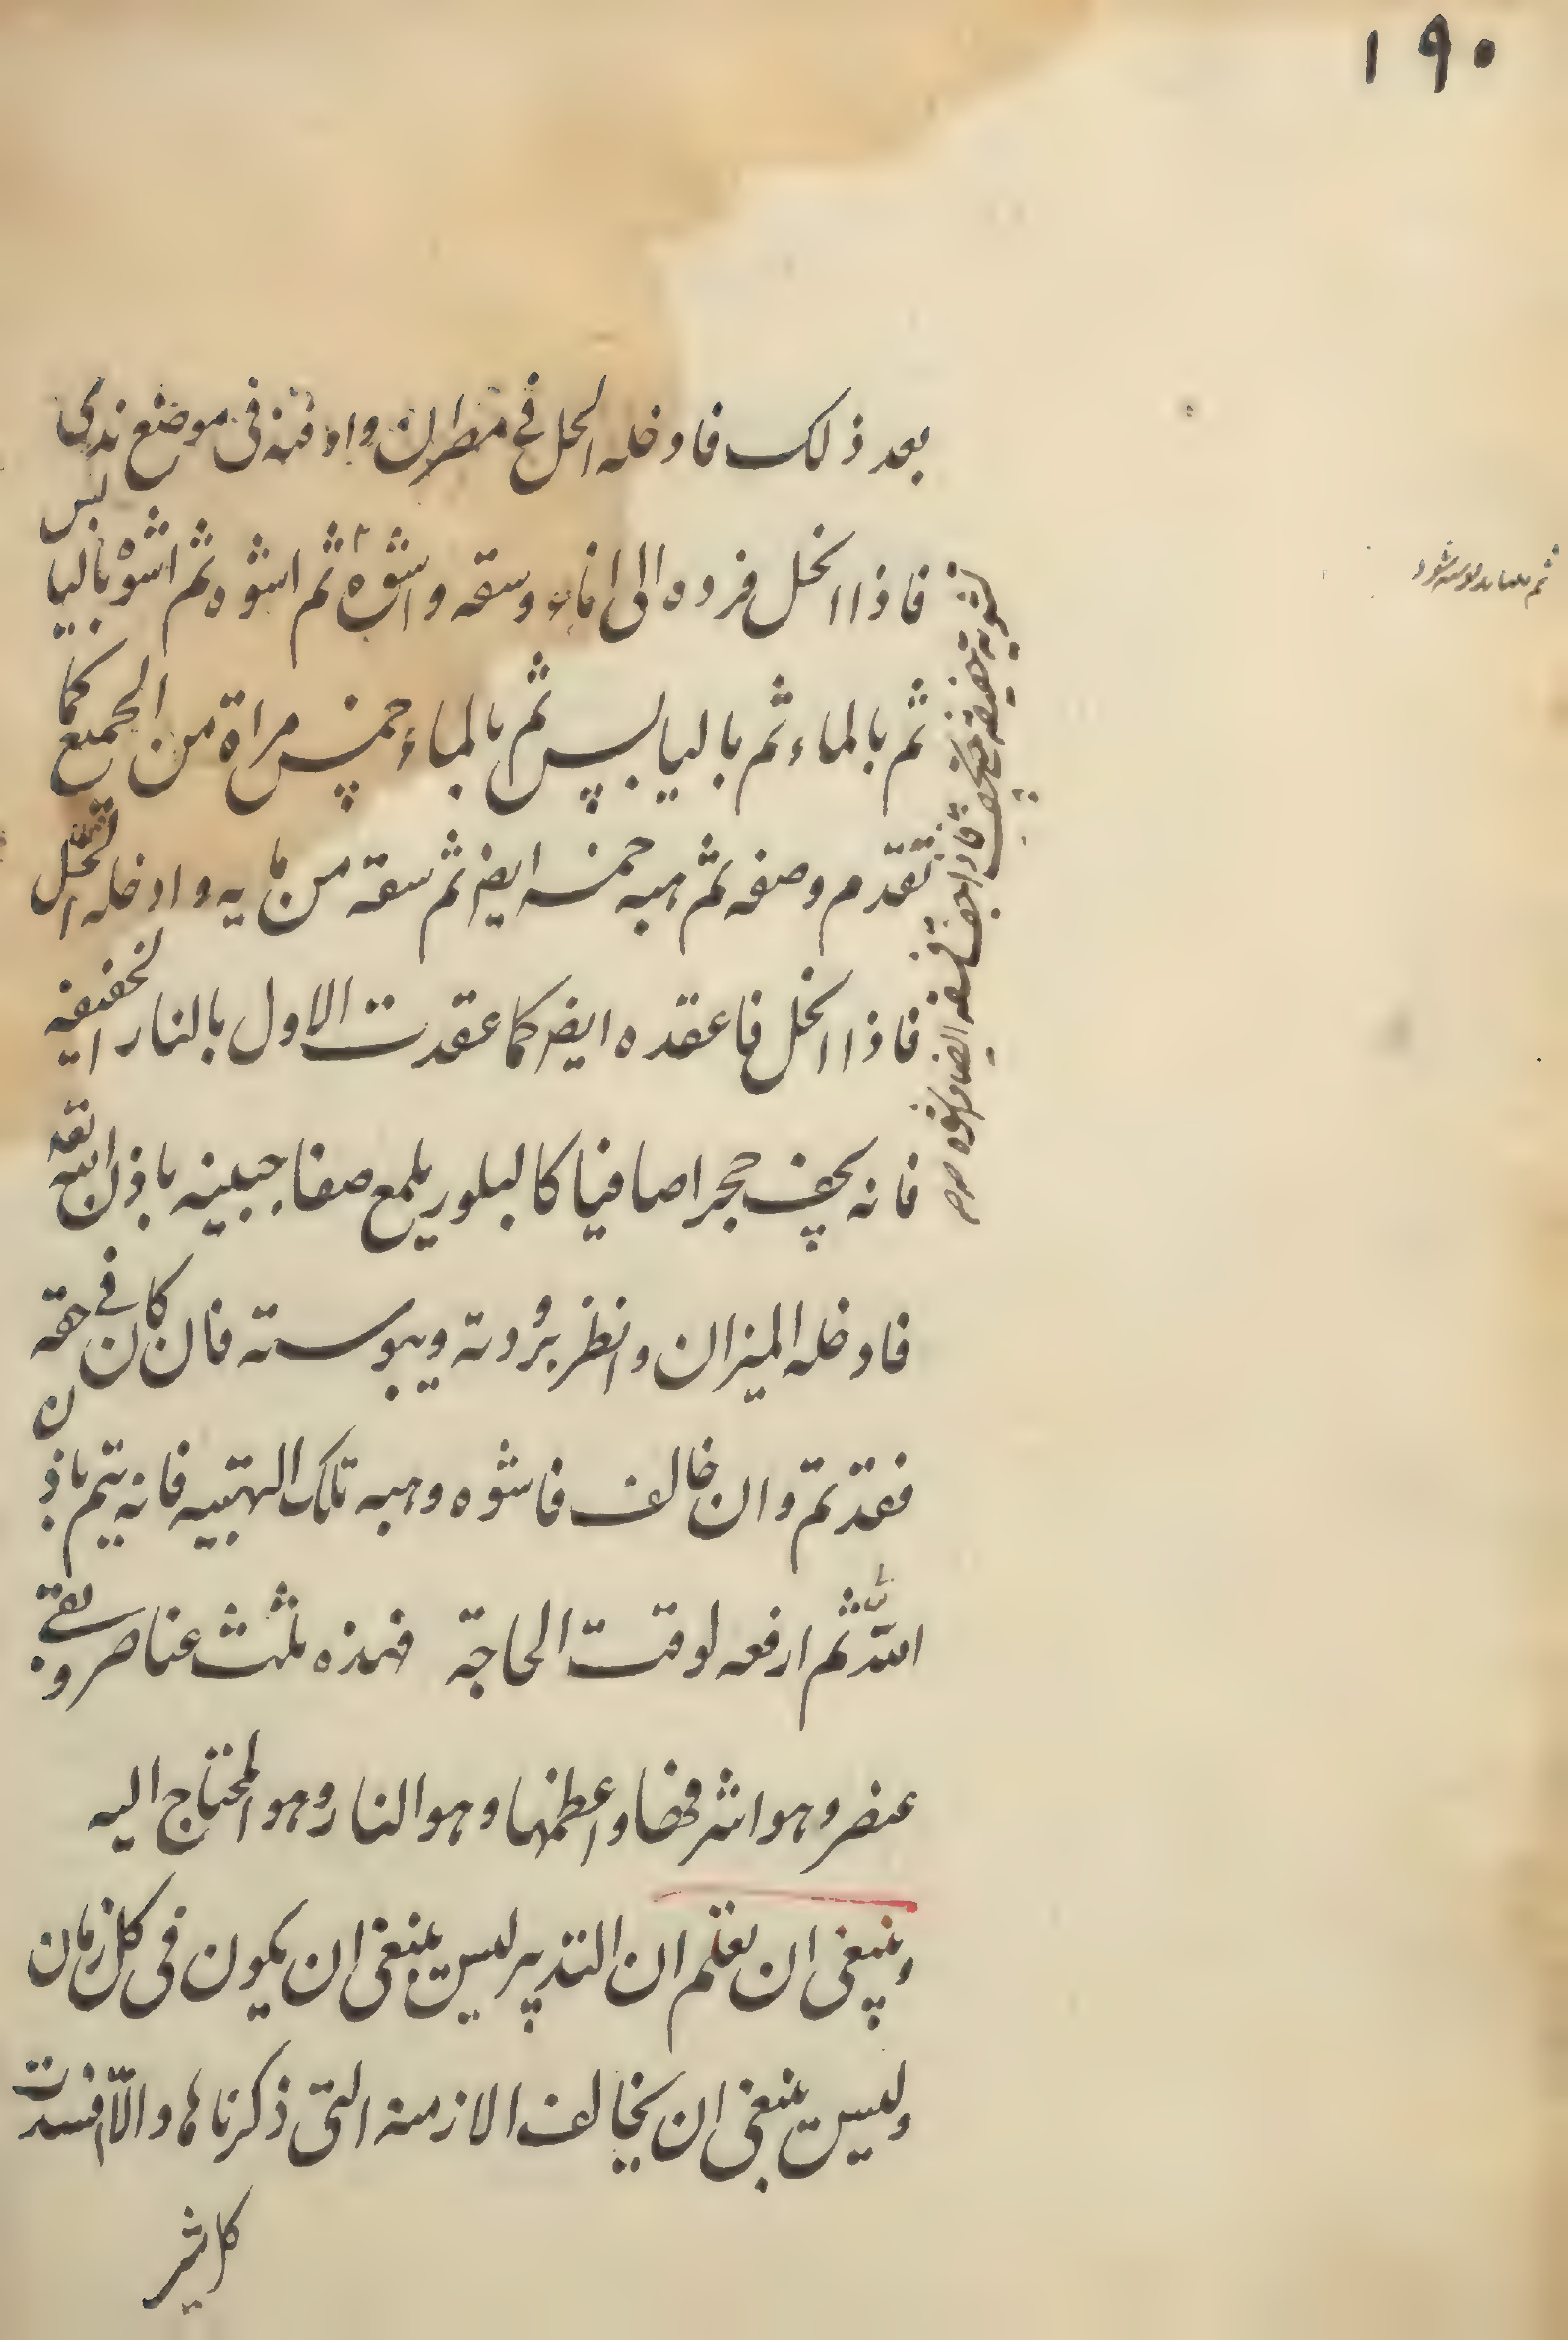 ١٩٠
بعد ذلك فادخله الحل فى مطران وادفنه فى موضع ندى
فاذا انحل فرده الى اناء وسقه واشوه ثم اشوه ثم اشوه باليابس
ثم بالماء ثم باليابس ثم بالماء خمس مراة من الجميع كما
تقدم وصفه ثم هبه خمسه ايض ثم سقه من مايه وادخله الحل
فاذا انحل فاعقده ايض كما عقدت الاول بالنار الخفيفه
فانه يجف حجرا صافيا كالبلور يلمع صفا جبينه باذن الله تعه
فادخله الميزان وانظر برودته ويبوسته فان كان فى حقه
فقد تم وان خالف فاشوه وهبه تلك الهتبيه فانه يتم باذن
الله ثم ارفعه لوقت الحاجة فهذه ثلث عناصر وبقى
عنصر وهو اشرفها واعظمها وهو النار وهو المحتاج اليه
وينبغى ان تعلم ان التدبير ليس ينبغى ان يكون فى كل زمان
وليس ينبغى ان يخالف الازمنه التى ذكرناها والا فسدت
كل شى
تشويه خفيفه حتى يجف فاذا جف فسقه ايضا واشوه